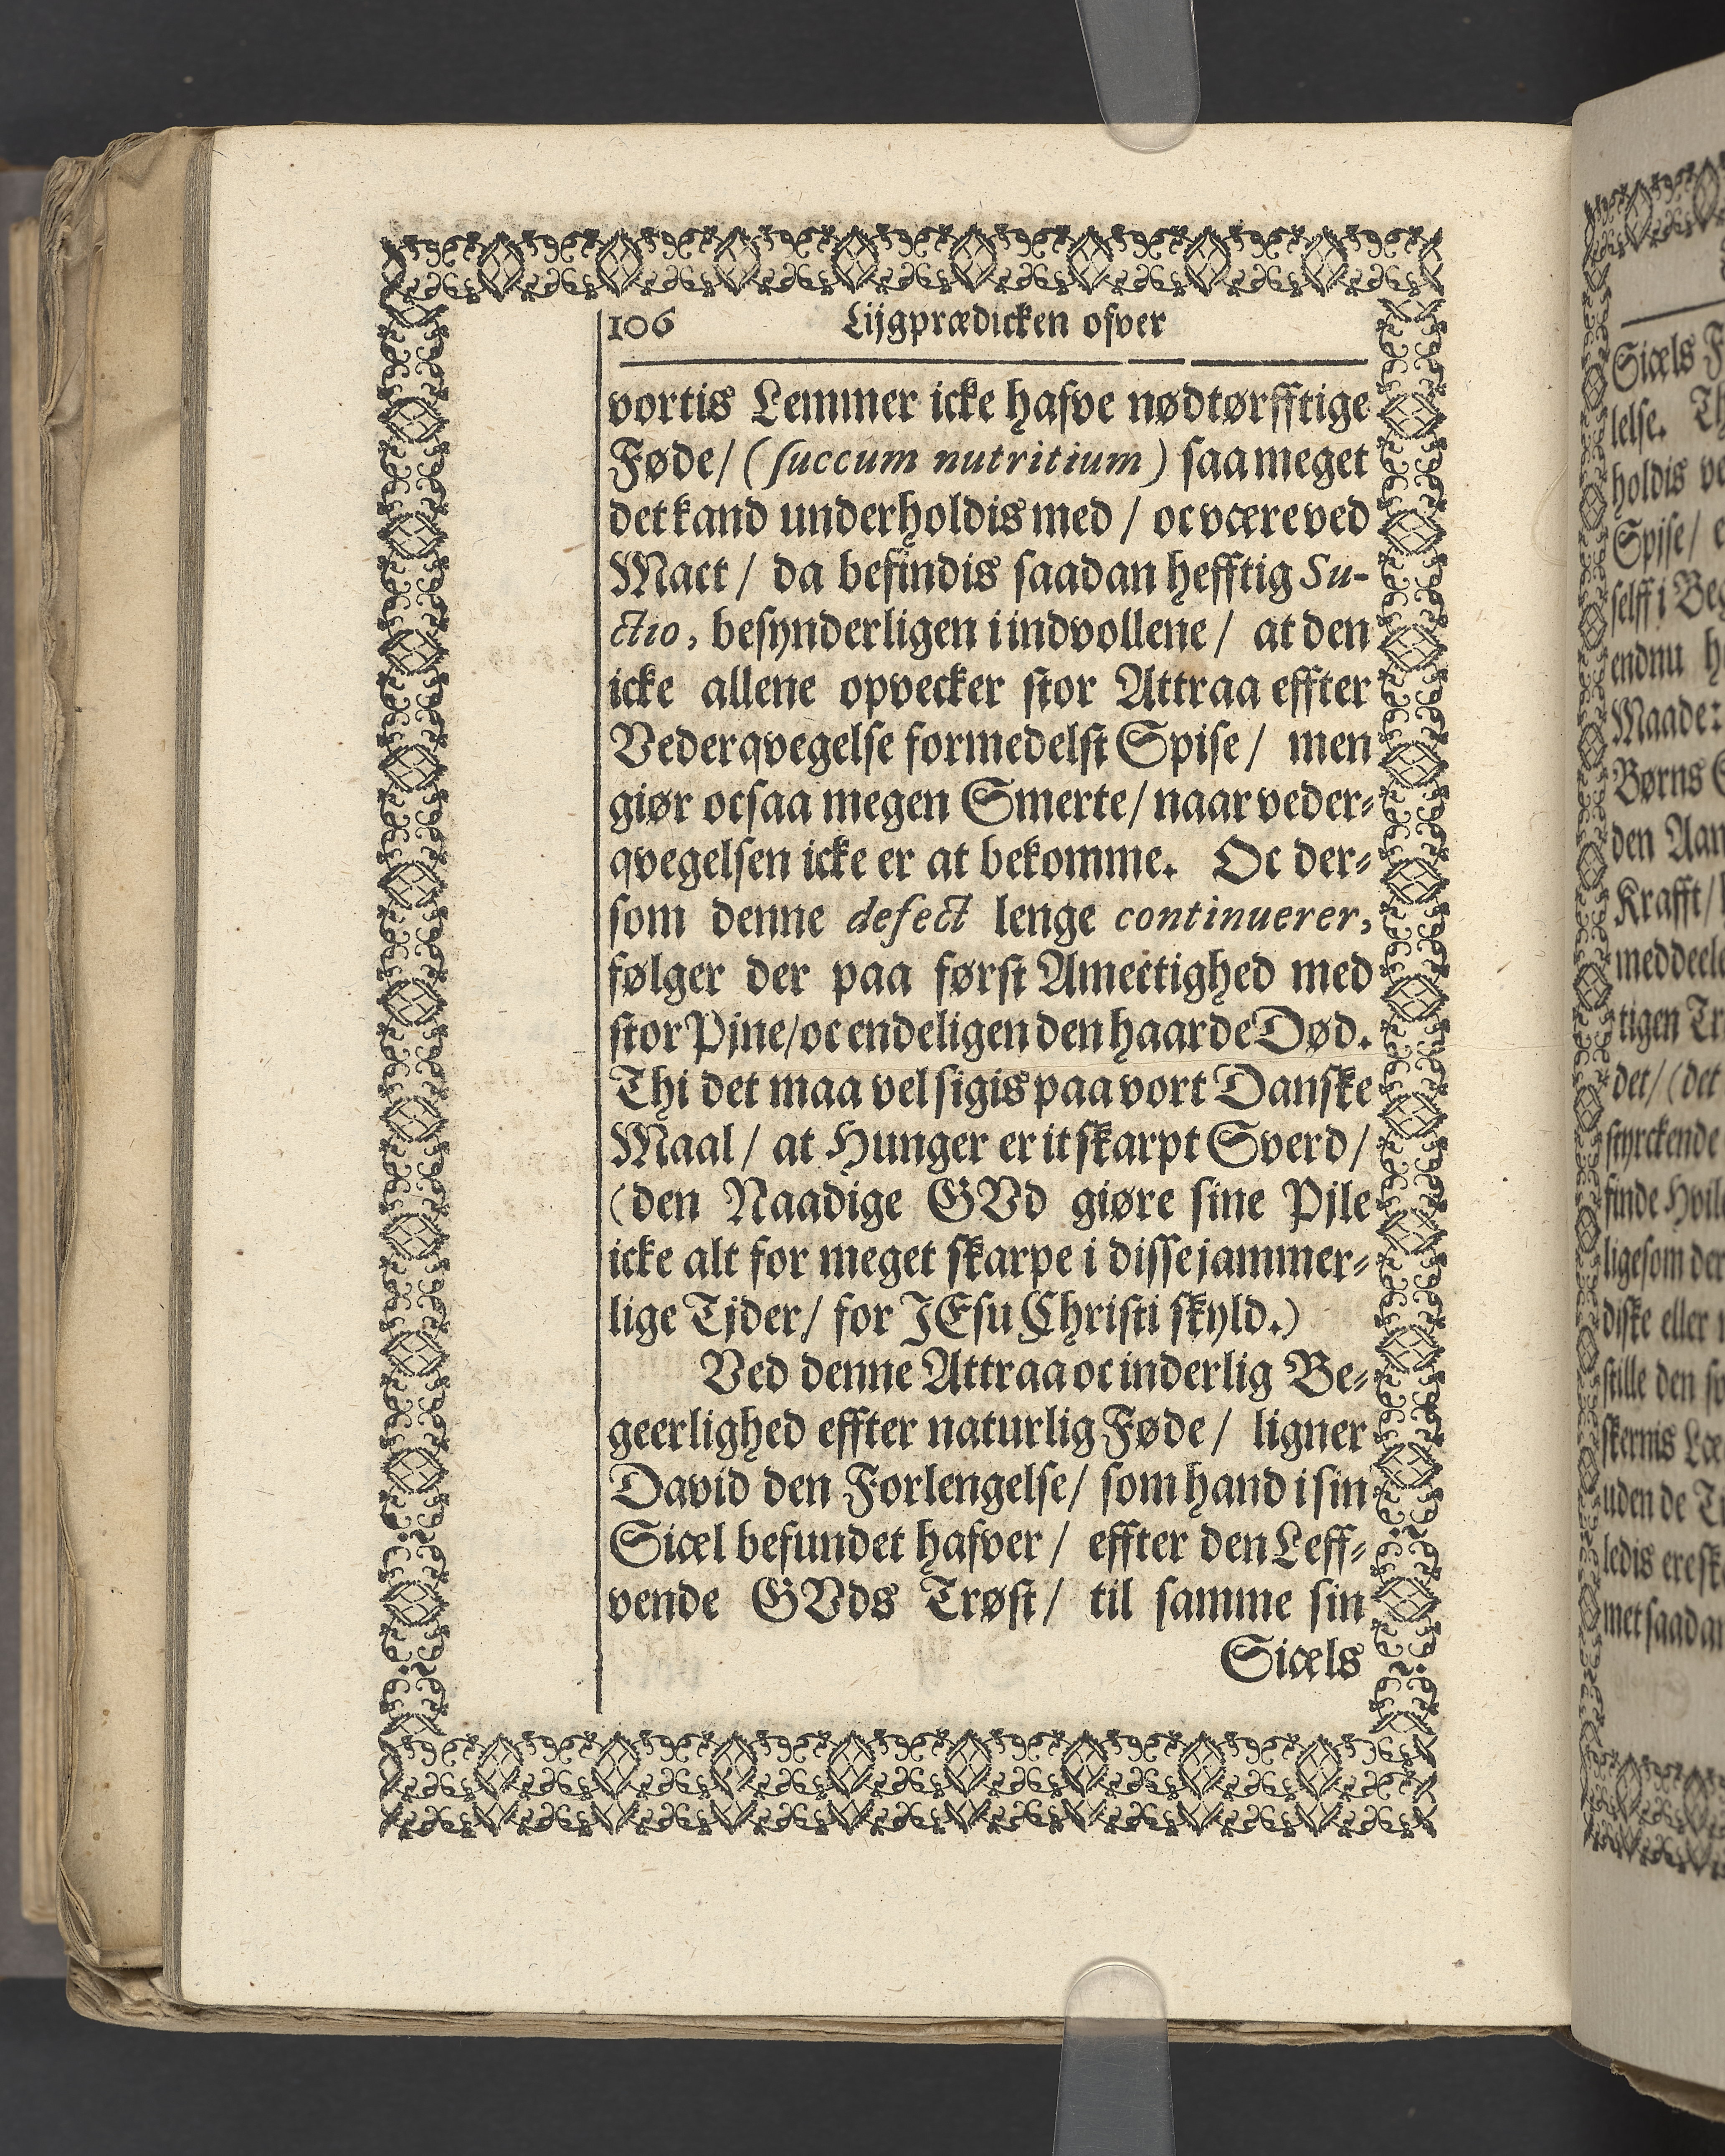 106 Lijgprædicken ofver
vortis Lemmer icke hafve nødtørfftige
Føde/ (succum nutritium) saa meget
det kand underholdis med / oc være ved
Mact / da befindis saadan hefftig Su-
ctio, besynderligen i indvollene / at den
icke allene opvecker stor Attraa effter
Vederqvegelse formedelst Spise / men
giør ocsaa megen Smerte / naar veder-
qvegelsen icke er at bekomme. Oc der-
som denne defect lenge continuerer,
følger der paa først Amectighed med
stor Pjne/oc endeligen den haarde Død.
Thi det maa vel sigis paa vort Danske
Maal / at Hunger er it skarpt Sverd /
(den Naadige GVd giøre sine Pjle
icke alt for meget skarpe i disse jammer-
lige Tjder / for JEsu Christi skyld.)
Ved denne Attraa oc inderlig Be-
geerlighed effter naturlig Føde / ligner
David den Forlengelse / som hand i sin
Siæl befundet hafver / effter den Leff-
vende GVds Trøst / til samme sin
Siæls
Siæls
lelse.
holdis
Spise/
selff i
endnu
Maade:
Børns
den
Krafft/
tigen
det/ (det
styrckende
finde
ligesom
diske eller
stille den
uden de